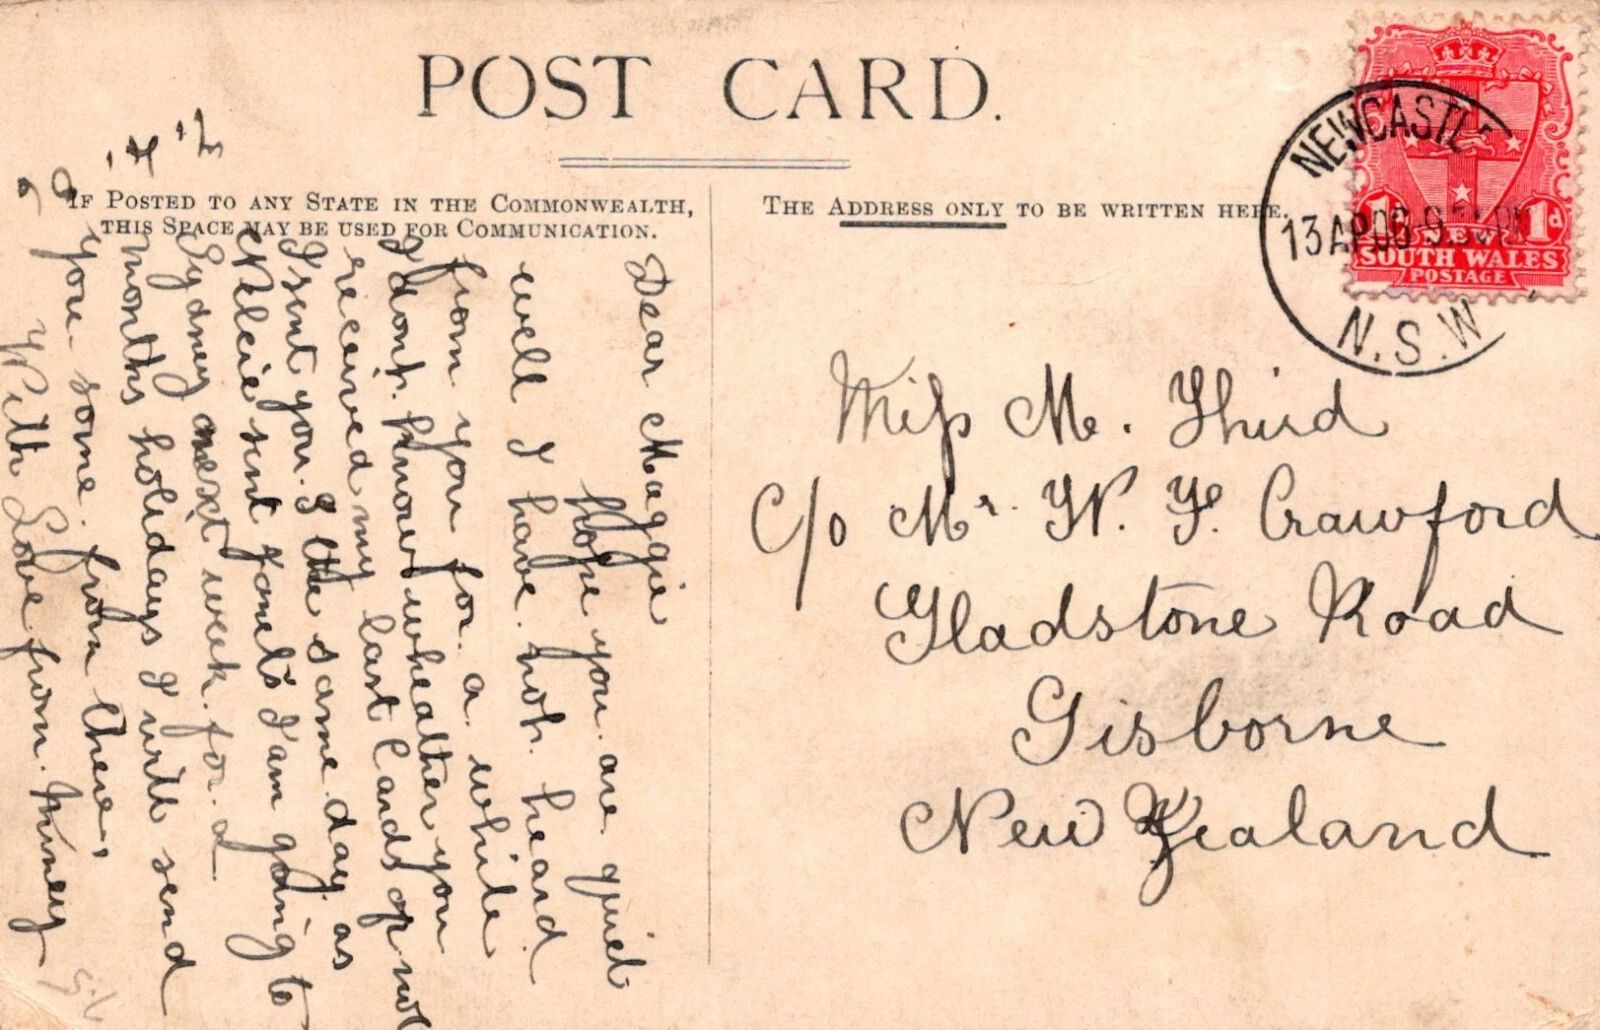 POST CARD.
IF POSTED TO ANY STATE IN THE COMMONWEALTH,
THIS SPACE MAY BE USED FOR COMMUNICATION.
THE ADDRESS ONLY TO BE WRITTEN HERE.
NEWCASTLE
13 AP 06 9.30 PM
N.S.W
1d 1d
NEW
SOUTH WALES
POSTAGE
Dear Maggie
hope you are quiet
well I have not heard
from you for a while
I dont know wheather you
received my last Cards or not
I sent you. I the same day as
Nelcie sent yours I am going to
Sydney next week for 2
months holidays I will send
you some from there,
With Love from
Miss M. Third
c/o Mr. W. F. Crawford
Gladstone Road
Gisborne
New Zealand